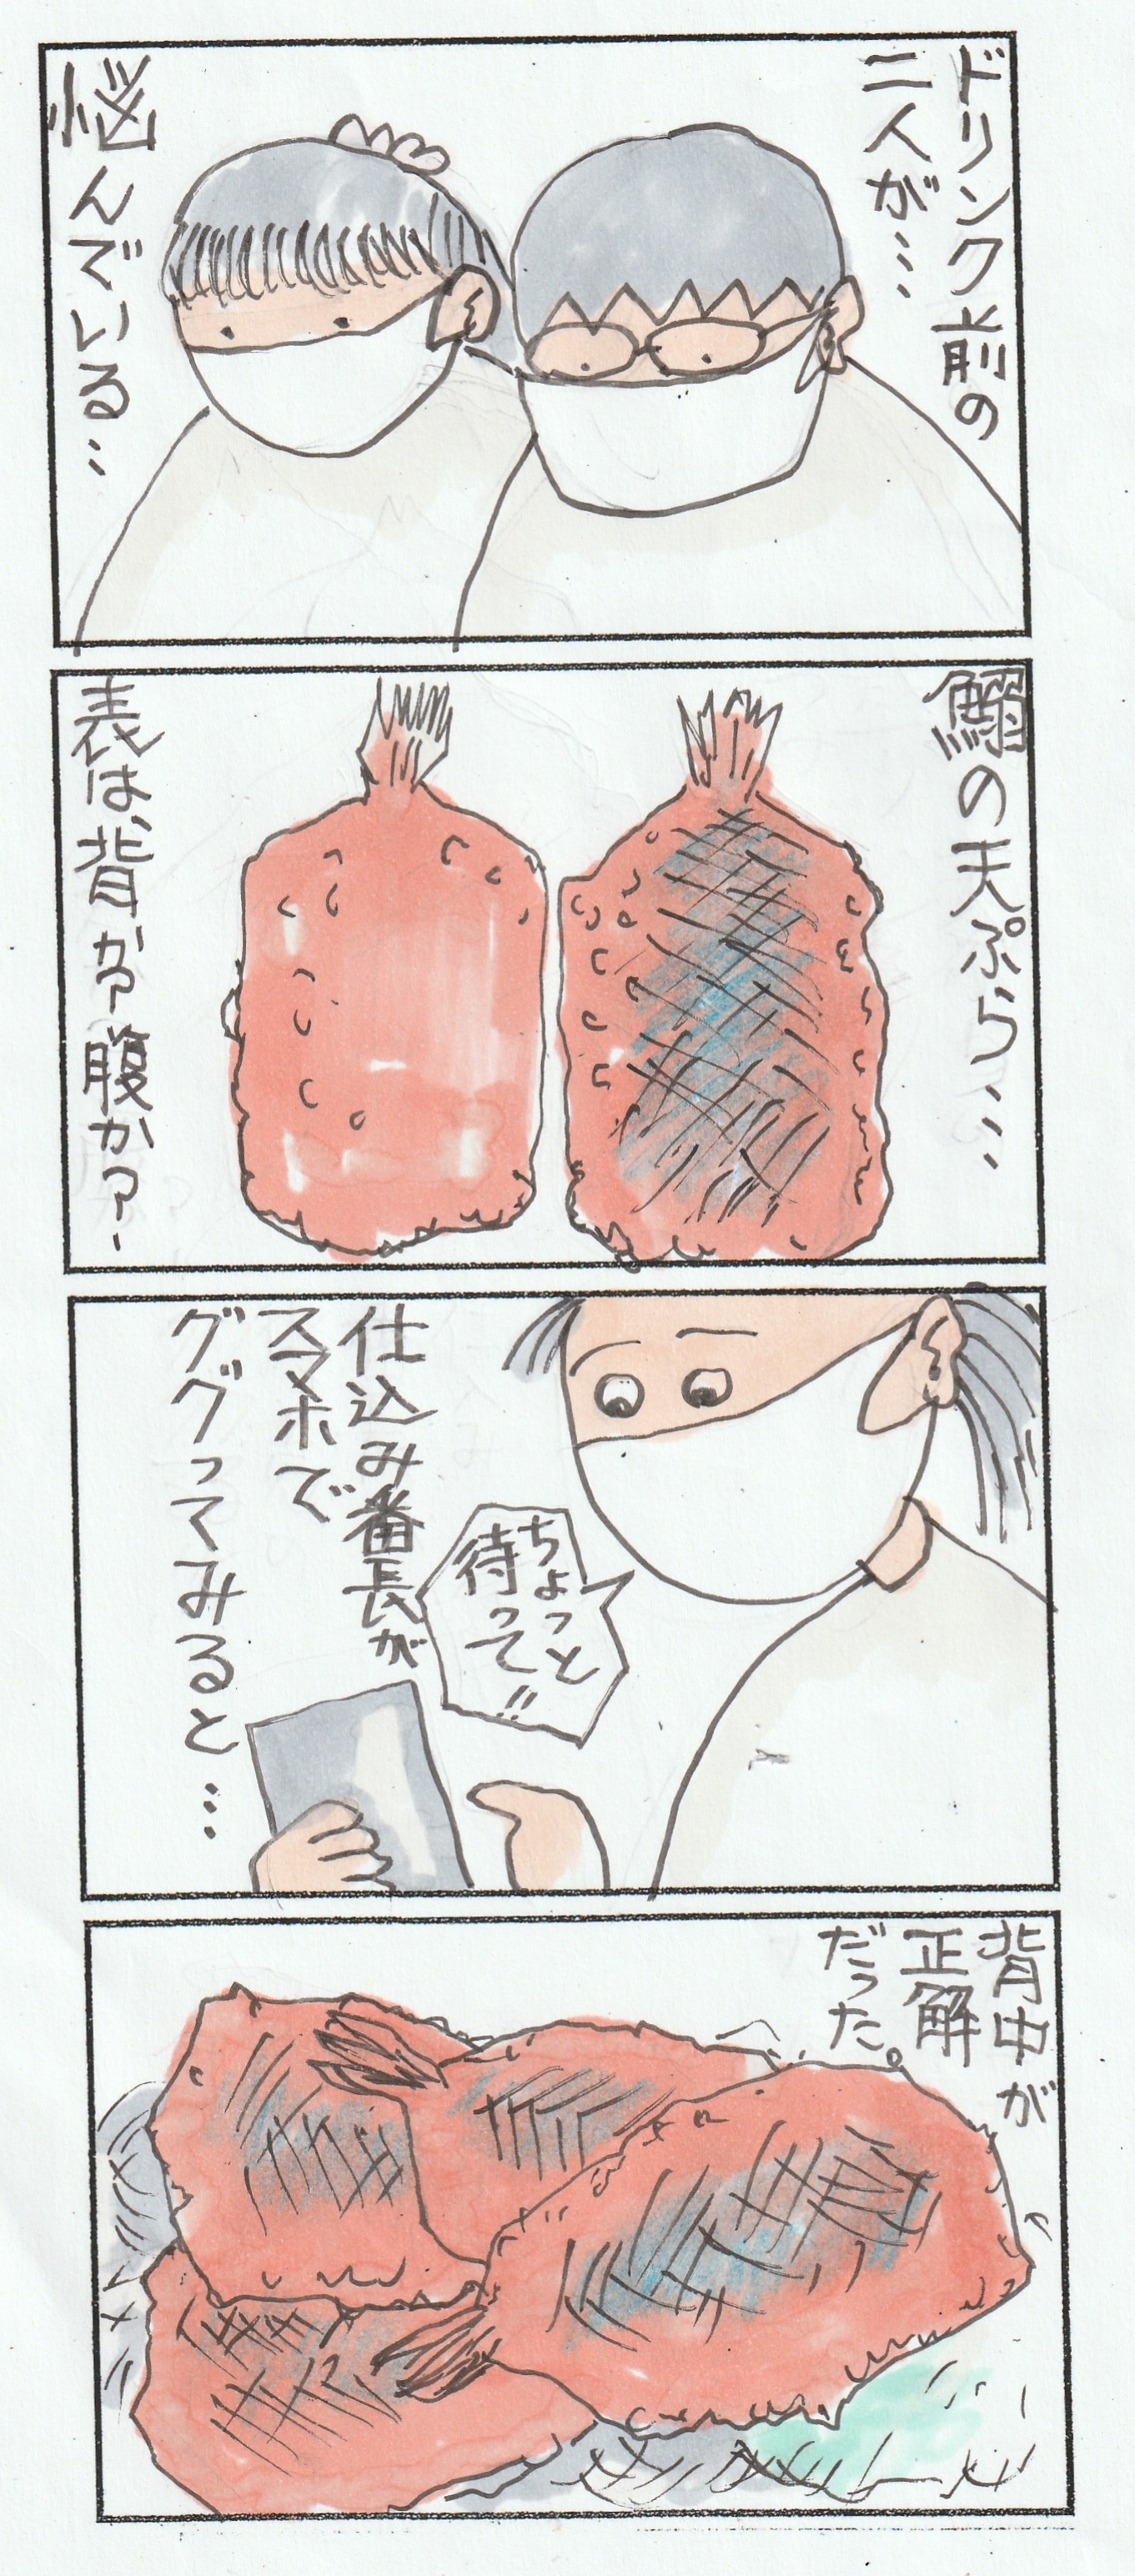 ドリンク前の
二人が…
悩んでいる…
鰯の天ぷら…
表は、背か？腹か？
ちょっと
待って!!
仕込み番長が
スマホで
ググってみると…
背中が
正解
だった。